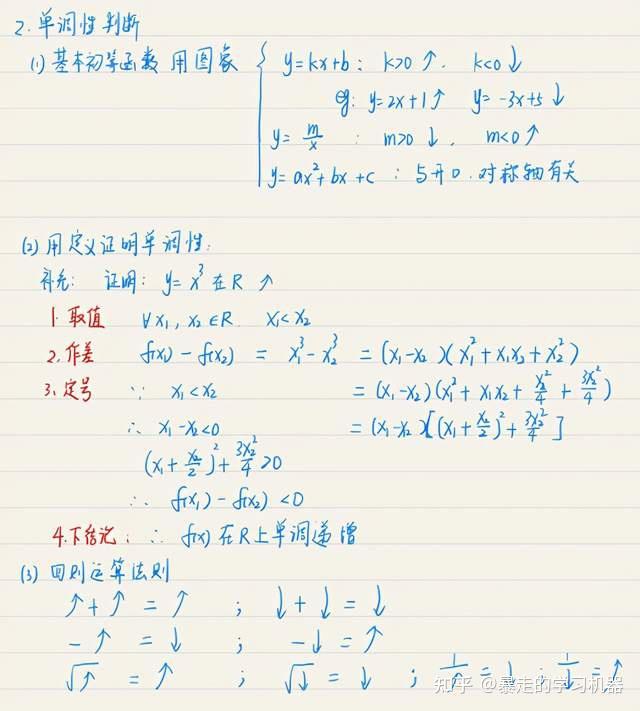 2. 单调性判断
(1) 基本初等函数 用图象 { y=kx+b: k>0 ↑. k<0 ↓
eg: y=2x+1 ↑ y=-3x+5 ↓
y=m/x : m>0 ↓, m<0 ↑
y=ax²+bx+c : 与开口.对称轴有关
(2) 用定义证明单调性:
补充: 证明: y=x³在R ↗
1. 取值 ∀x₁,x₂∈R. x₁<x₂
2. 作差 f(x₁)-f(x₂) = x₁³-x₂³ = (x₁-x₂)(x₁²+x₁x₂+x₂²)
3. 定号 ∵ x₁<x₂ = (x₁-x₂)(x₁²+x₁x₂+x₂²/4+3x₂²/4)
∴ x₁-x₂<0 = (x₁-x₂)[(x₁+x₂/2)²+3x₂²/4]
(x₁+x₂/2)²+3x₂²/4>0
∴ f(x₁)-f(x₂)<0
4. 下结论: ∴ f(x)在R上单调递增
(3) 四则运算法则
↑+↑=↑ ; ↓+↓=↓
-↑=↓ ; -↓=↑
√↑=↑ ; √↓=↓ ; 1/↑=↓ ; 1/↓=↑
知乎 @暴走的学习机器